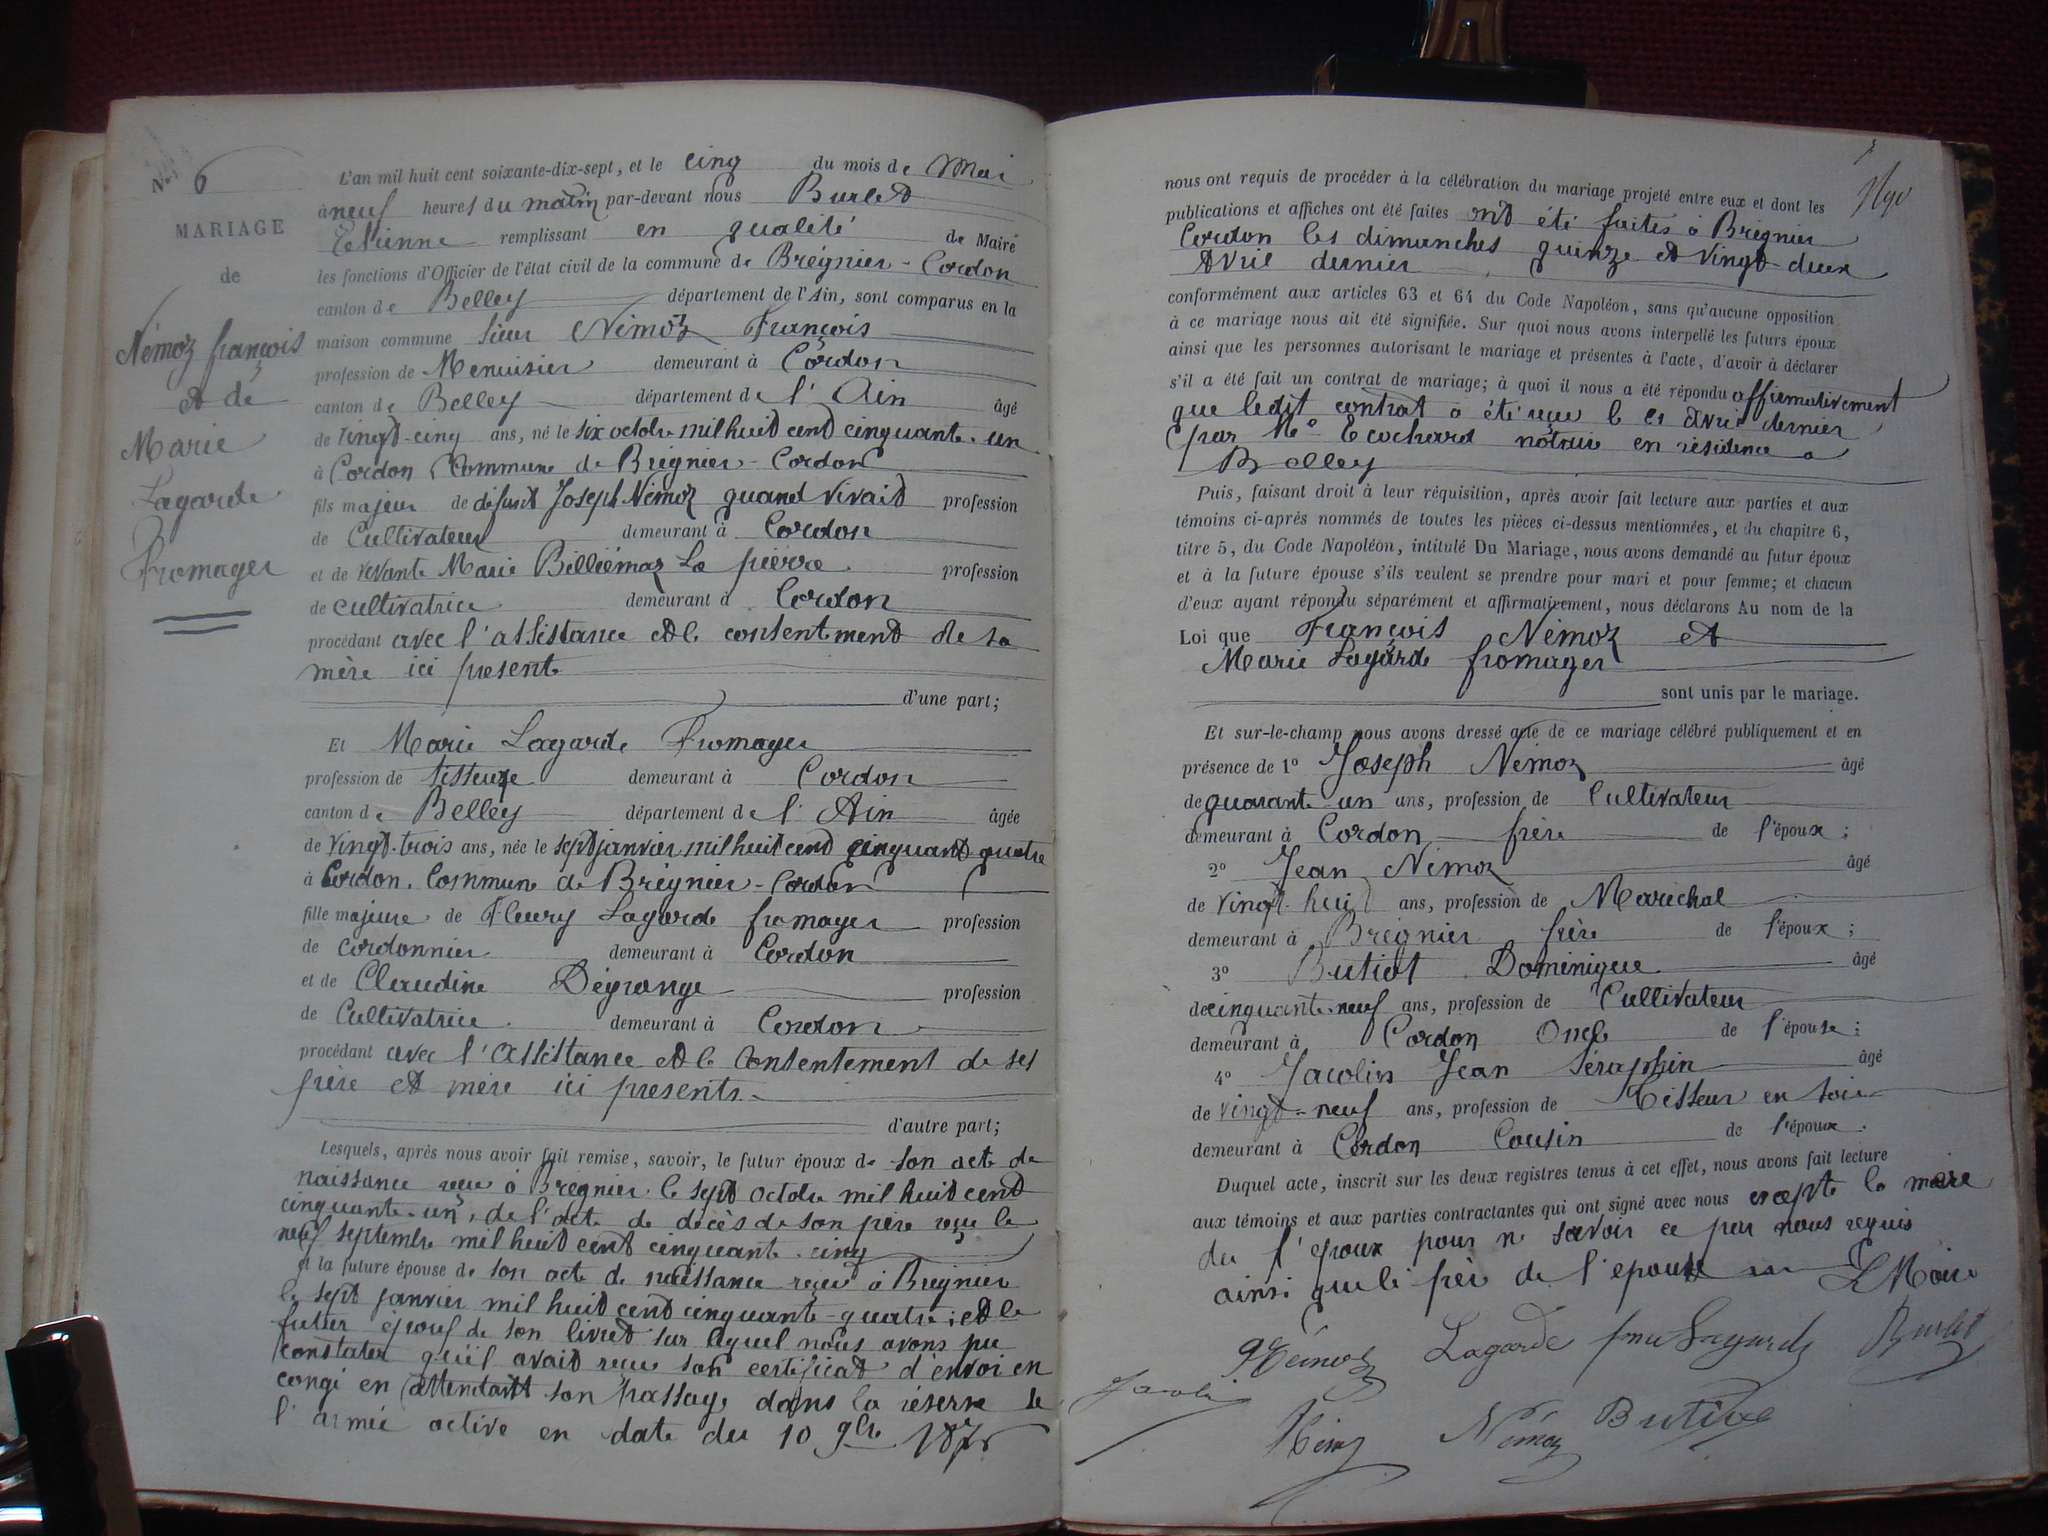 N° 6
MARIAGE
de
Némoz françois
et de
Marie
Lagarde
Fromager
L'an mil huit cent soixante-dix-sept, et le cinq du mois de Mai
à neuf heures du matin par-devant nous Burlet
Etienne remplissant en qualité de Maire
les fonctions d'Officier de l'état civil de la commune de Brégnier-Cordon
canton de Belley département de l'Ain, sont comparus en la
maison commune sieur Némoz François
profession de Menuisier demeurant à Cordon
canton de Belley département de l'Ain âgé
de vingt-cinq ans, né le six octobre mil huit cent cinquante-un
à Cordon Commune de Brégnier-Cordon
fils majeur de défunt Joseph Némoz quand vivait profession
de Cultivateur demeurant à Cordon
et de vivante Marie Billiémaz La pierre profession
de cultivatrice demeurant à Cordon
procédant avec l'assistance et le consentement de sa
mère ici présente
d'une part;
Et Marie Lagarde Fromager
profession de tisseuze demeurant à Cordon
canton de Belley département de l'Ain âgée
de vingt-trois ans, née le sept janvier mil huit cent cinquant quatre
à Cordon. Commune de Brégnier-Cordon
fille majeure de Fleury Lagarde fromager profession
de cordonnier demeurant à Cordon
et de Claudine Dégrange profession
de Cultivatrice demeurant à Cordon
procédant avec l'assistance et le consentement de ses
père et mère ici presents.
d'autre part;
Lesquels, après nous avoir fait remise, savoir, le futur époux de son acte de
naissance reçu à Brégnier le sept octobre mil huit cent
cinquante-un, de l'acte de décès de son père reçu le
neuf septembre mil huit cent cinquante-cinq
et la future épouse de son acte de naissance reçu à Brégnier
le sept janvier mil huit cent cinquante-quatre; et le
futur époux de son livret sur lequel nous avons pu
constater qu'il avait reçu son certificat d'envoi en
congé en attendant son passage dans la réserve de
l'armée active en date du 10 9bre
nous ont requis de procéder à la célébration du mariage projeté entre eux et dont les
publications et affiches ont été faites ont été faites à Brégnier
Cordon les dimanches quinze et vingt-deux
Avril dernier
conformément aux articles 63 et 64 du Code Napoléon, sans qu'aucune opposition
à ce mariage nous ait été signifiée. Sur quoi nous avons interpellé les futurs époux
ainsi que les personnes autorisant le mariage et présentes à l'acte, d'avoir à déclarer
s'il a été fait un contrat de mariage; à quoi il nous a été répondu affirmativement
que ledit contrat a été reçu le 21 avril dernier
par Me Ecochard notaire en résidence à
Belley
Puis, faisant droit à leur réquisition, après avoir fait lecture aux parties et aux
témoins ci-après nommés de toutes les pièces ci-dessus mentionnées, et du chapitre 6,
titre 5, du Code Napoléon, intitulé Du Mariage, nous avons demandé au futur époux
et à la future épouse s'ils veulent se prendre pour mari et pour femme; et chacun
d'eux ayant répondu séparément et affirmativement, nous déclarons Au nom de la
Loi que François Némoz et
Marie Lagarde fromager
sont unis par le mariage.
Et sur-le-champ nous avons dressé acte de ce mariage célébré publiquement et en
présence de 1° Joseph Némoz âgé
de quarante-un ans, profession de Cultivateur
demeurant à Cordon frère de l'époux;
2° Jean Némoz âgé
de vingt-huit ans, profession de Maréchal
demeurant à Brégnier frère de l'époux;
3° Butiot Dominique âgé
de cinquante-neuf ans, profession de Cultivateur
demeurant à Cordon Oncle de l'épouse;
4° Jacolin Jean Séraphin âgé
de vingt-neuf ans, profession de Tisseur en soie
demeurant à Cordon Cousin de l'époux.
Duquel acte, inscrit sur les deux registres tenus à cet effet, nous avons fait lecture
aux témoins et aux parties contractantes qui ont signé avec nous excepté la mère
de l'époux pour ne savoir ce par nous requis
ainsi que le père de l'épouse Le Maire
Némoz Lagarde fme Lagarde Burlet
Jacolin
Némoz Némoz Butiot